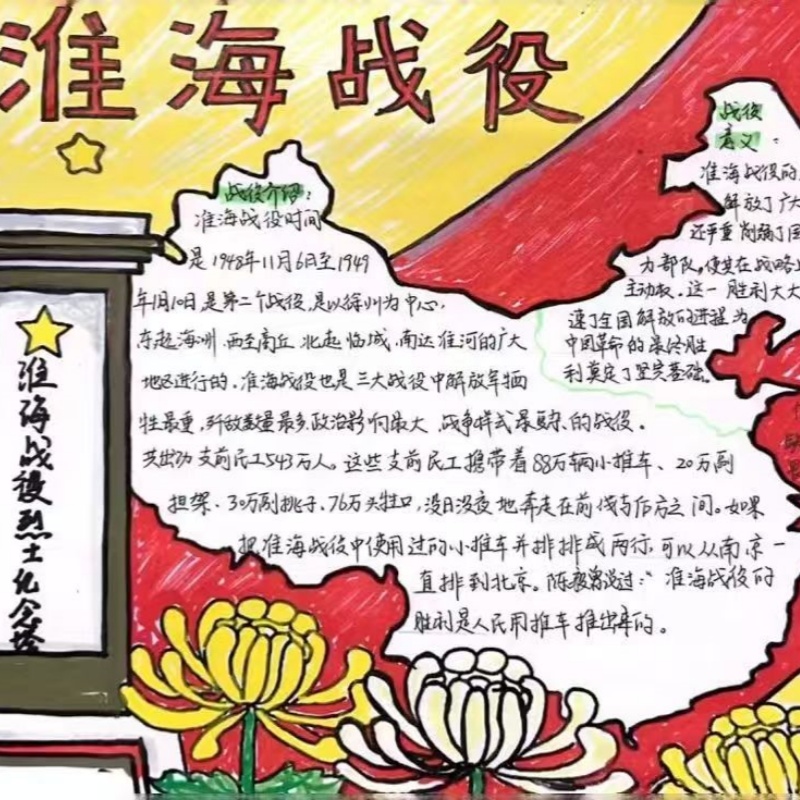 淮海战役
战役介绍：
淮海战役时间
是1948年11月6日至1949
年1月10日是第二个战役，是以徐州为中心，
东起海州、西至商丘、北起临城、南达淮河的广大
地区进行的。淮海战役也是三大战役中解放军牺
牲最重，歼敌数量最多，政治影响最大、战争样式最复杂的战役。
共出动支前民工543万人。这些支前民工携带着88万辆小推车、20万副
担架、30万副挑子、76万头牲口，没日没夜地奔走在前线与后方之间。如果
把淮海战役中使用过的小推车并排排成两行，可以从南京一
直排到北京。陈毅曾说过："淮海战役的
胜利是人民用推车推出来的。
战役
意义：
淮海战役的
解放了广大
还严重削弱了国
力部队，使其在战略上
主动权。这一胜利大大
速了全国解放的进程为
中国革命的最终胜
利奠定了坚实基础。
淮海战役烈士纪念塔